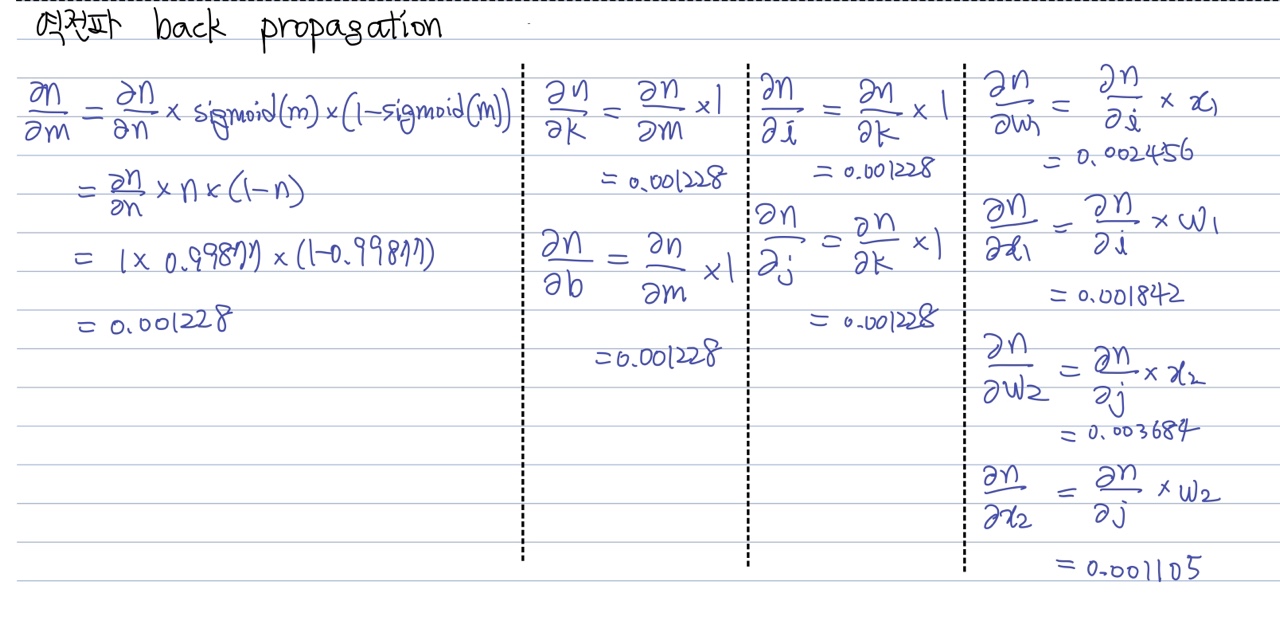 역전파 back propagation
∂n/∂m = ∂n/∂n × sigmoid(m) × (1-sigmoid(m))
= ∂n/∂n × n × (1-n)
= 1 × 0.99877 × (1-0.99877)
= 0.001228
∂n/∂k = ∂n/∂m × 1
= 0.001228
∂n/∂b = ∂n/∂m × 1
= 0.001228
∂n/∂i = ∂n/∂k × 1
= 0.001228
∂n/∂j = ∂n/∂k × 1
= 0.001228
∂n/∂w₁ = ∂n/∂i × x₁
= 0.002456
∂n/∂x₁ = ∂n/∂i × w₁
= 0.001842
∂n/∂w₂ = ∂n/∂j × x₂
= 0.003684
∂n/∂x₂ = ∂n/∂j × w₂
= 0.001105